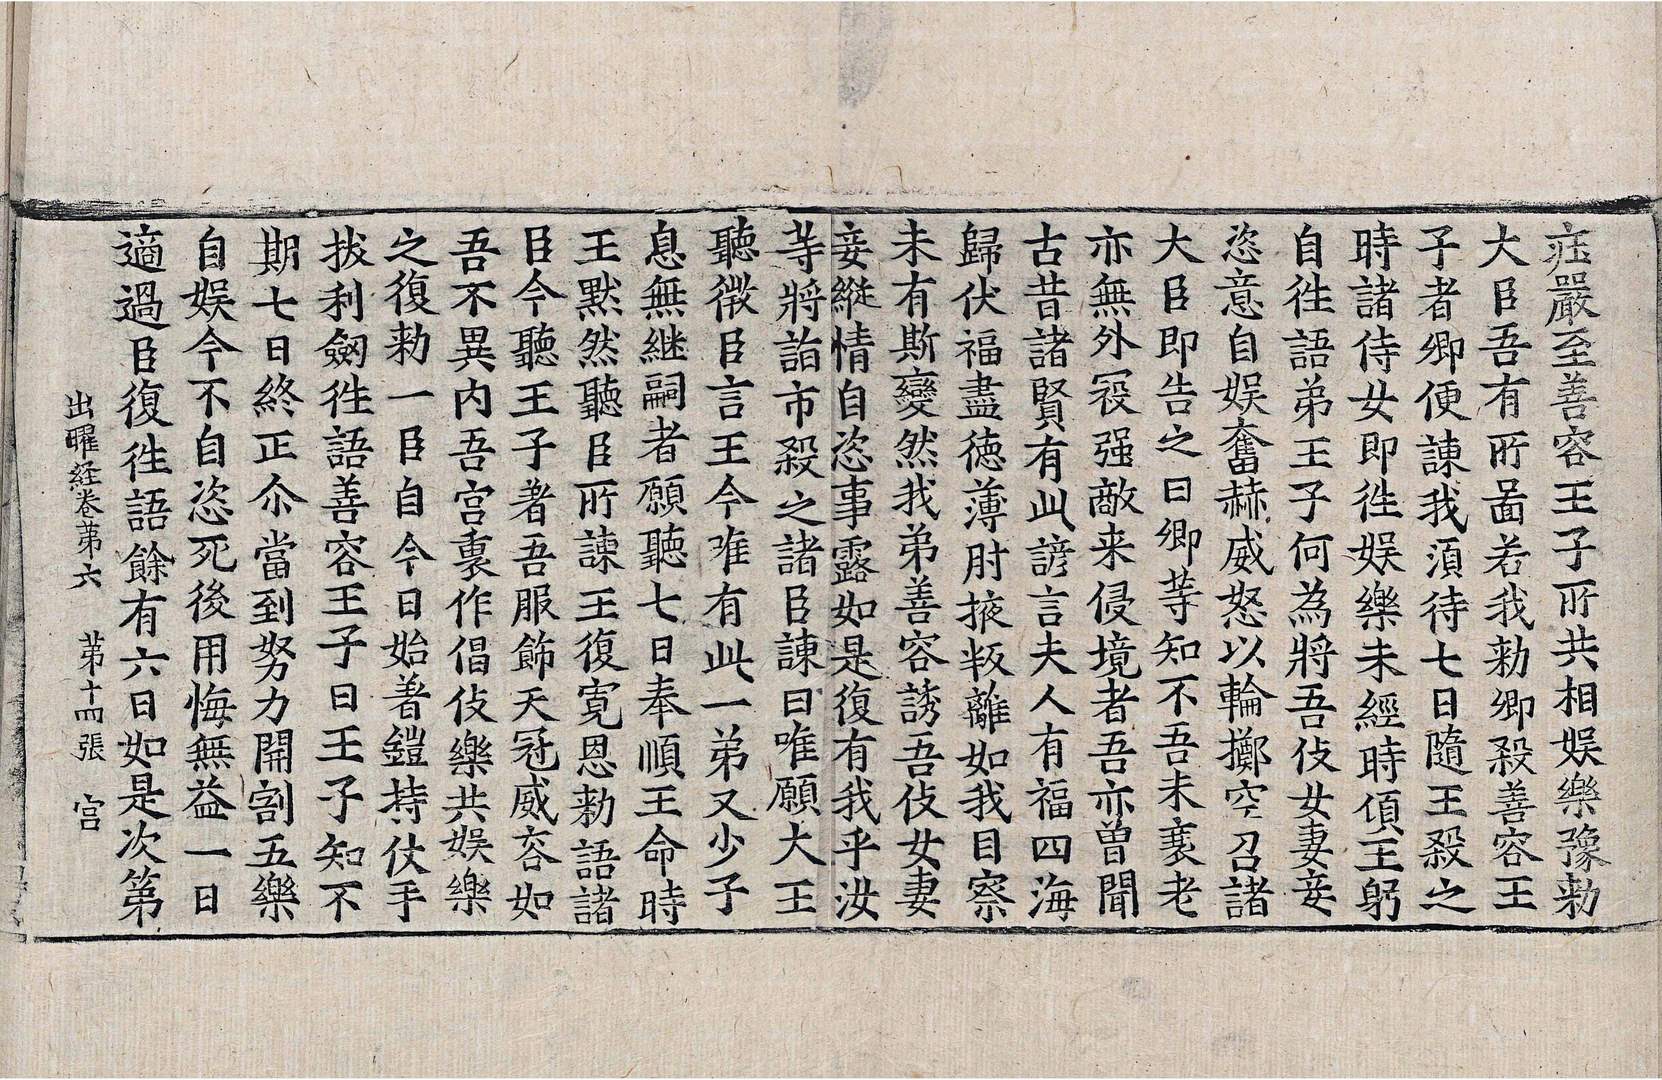 疰嚴至善容王子所共相娛樂豫勑
大臣吾有所啚若我勑卿殺善容王
子者卿便諫我湏待七日隨王殺之
時諸侍女即徃娛樂未經時傾王躬
自徃語弟王子何為將吾伎女妻妾
恣意自娛奮赫威怒以輪擲空召諸
大臣即告之曰卿等知不吾未衰老
亦無外寇强敵来侵境者吾亦曽聞
古昔諸賢有此諺言夫人有福四海
歸伏福盡徳薄肘掖叛離如我目察
未有斯變然我弟善容誘吾伎女妻
妾縱情自恣事露如是復有我乎汝
等將詣市殺之諸臣諫曰唯願大王
聽微臣言王今唯有此一弟又少子
息無継嗣者願聽七日奉順王命時
王默然聽臣所諫王復寛恩勑語諸
臣今聽王子著吾服飾天冠威容如
吾不異内吾宮裏作倡伎樂共娛樂
之復勑一臣自今日始著鎧持仗手
拔利劔徃語善容王子曰王子知不
期七日終正尒當到努力開割五樂
自娛今不自恣死後用悔無益一日
適過臣復徃語餘有六日如是次第
出曜経卷苐六 苐十四張 宮